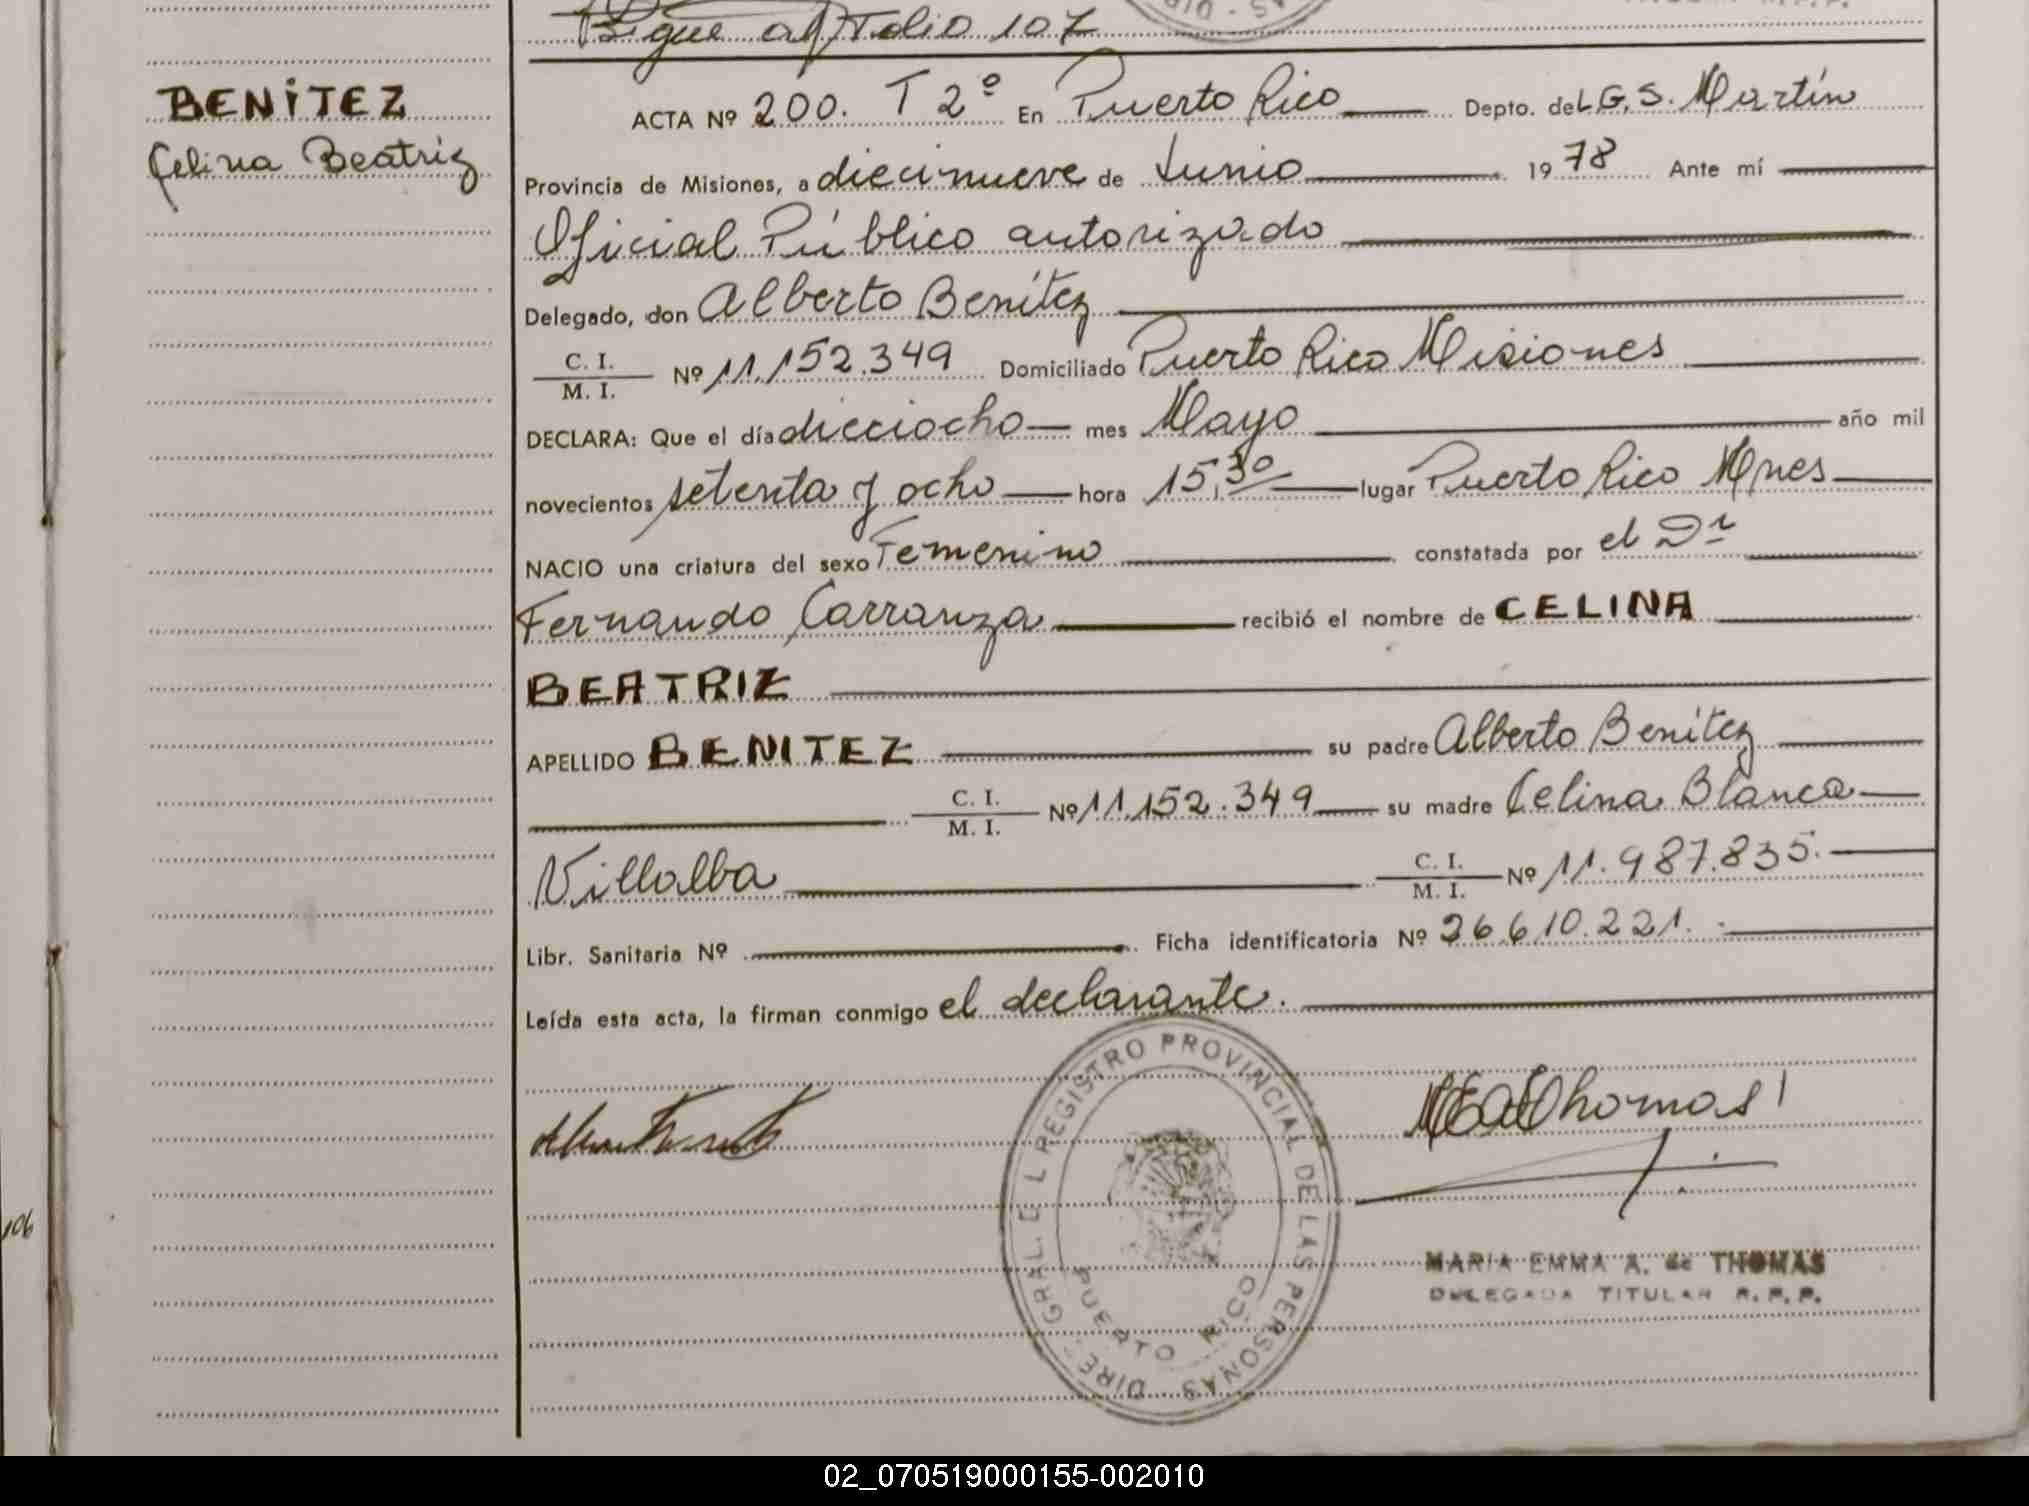 Sigue al Folio 107
BENITEZ
Celina Beatriz
ACTA Nº 200. T 2º En Puerto Rico Depto. de L.G.S. Martín
Provincia de Misiones, a diecinueve de Junio 1978 Ante mí
Oficial Público autorizado
Delegado, don Alberto Benítez
C. I.
M. I. Nº 11.152.349 Domiciliado Puerto Rico Misiones
DECLARA: Que el día dieciocho mes Mayo año mil
novecientos setenta y ocho hora 15,30 lugar Puerto Rico Mnes
NACIO una criatura del sexo Femenino constatada por el Dr
Fernando Carranza recibió el nombre de CELINA
BEATRIZ
APELLIDO BENITEZ su padre Alberto Benítez
C. I.
M. I. Nº 11.152.349 su madre Celina Blanca
Villalba C. I.
M. I. Nº 11.987.835.
Libr. Sanitaria Nº Ficha identificatoria Nº 26.610.221.
Leída esta acta, la firman conmigo el declarante.
DIRE. GRAL. DEL REGISTRO PROVINCIAL DE LAS PERSONAS
PUERTO RICO
MEAdeThomas
MARIA EMMA A. de THOMAS
DELEGADA TITULAR R. P. P.
106
02_070519000155-002010